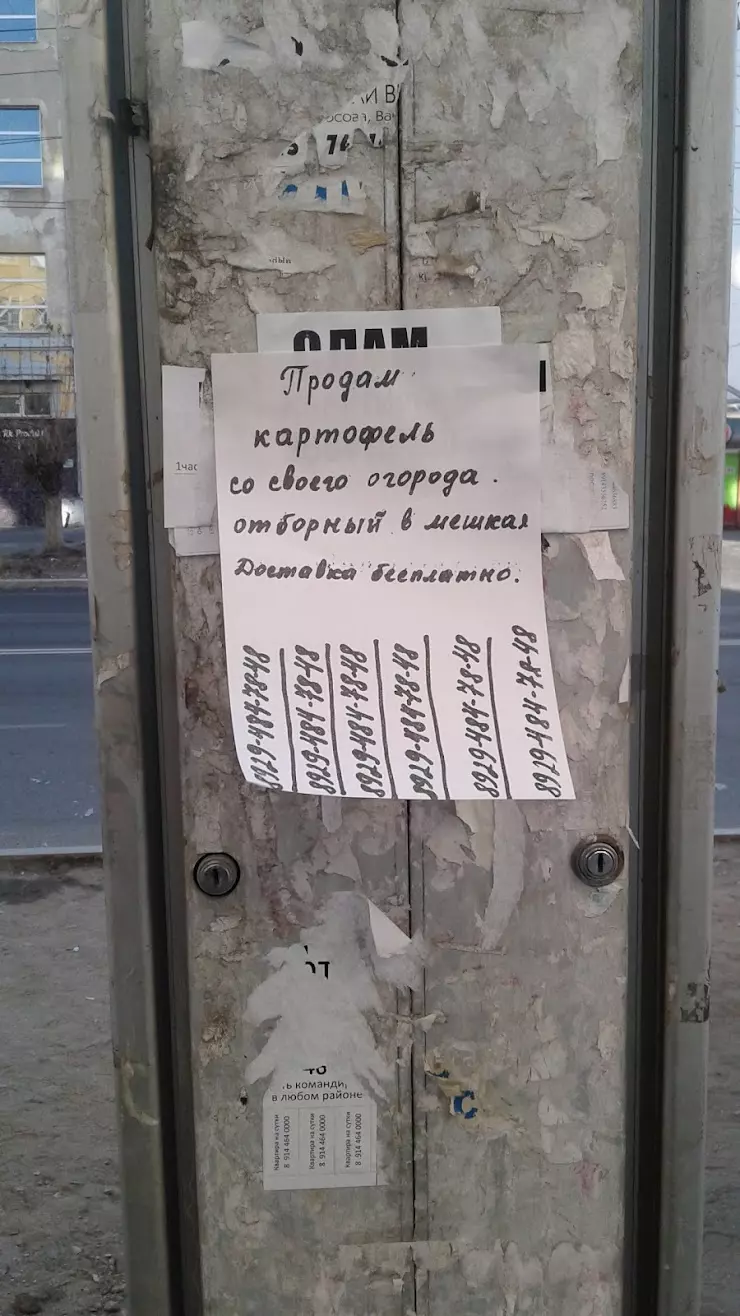 74
ОДАМ
1час
Продам
картофель
со своего огорода.
отборный в мешках
Доставка бесплатно.
8929-484-78-48
8929-484-78-48
8929-484-78-48
8929-484-78-48
8929-484-78-48
8929-484-78-48
ь команди
в любом районе
Квартира на сутки
8 914 464 0000
Квартира на сутки
8 914 464 0000
Квартира на сутки
8 914 464 0000